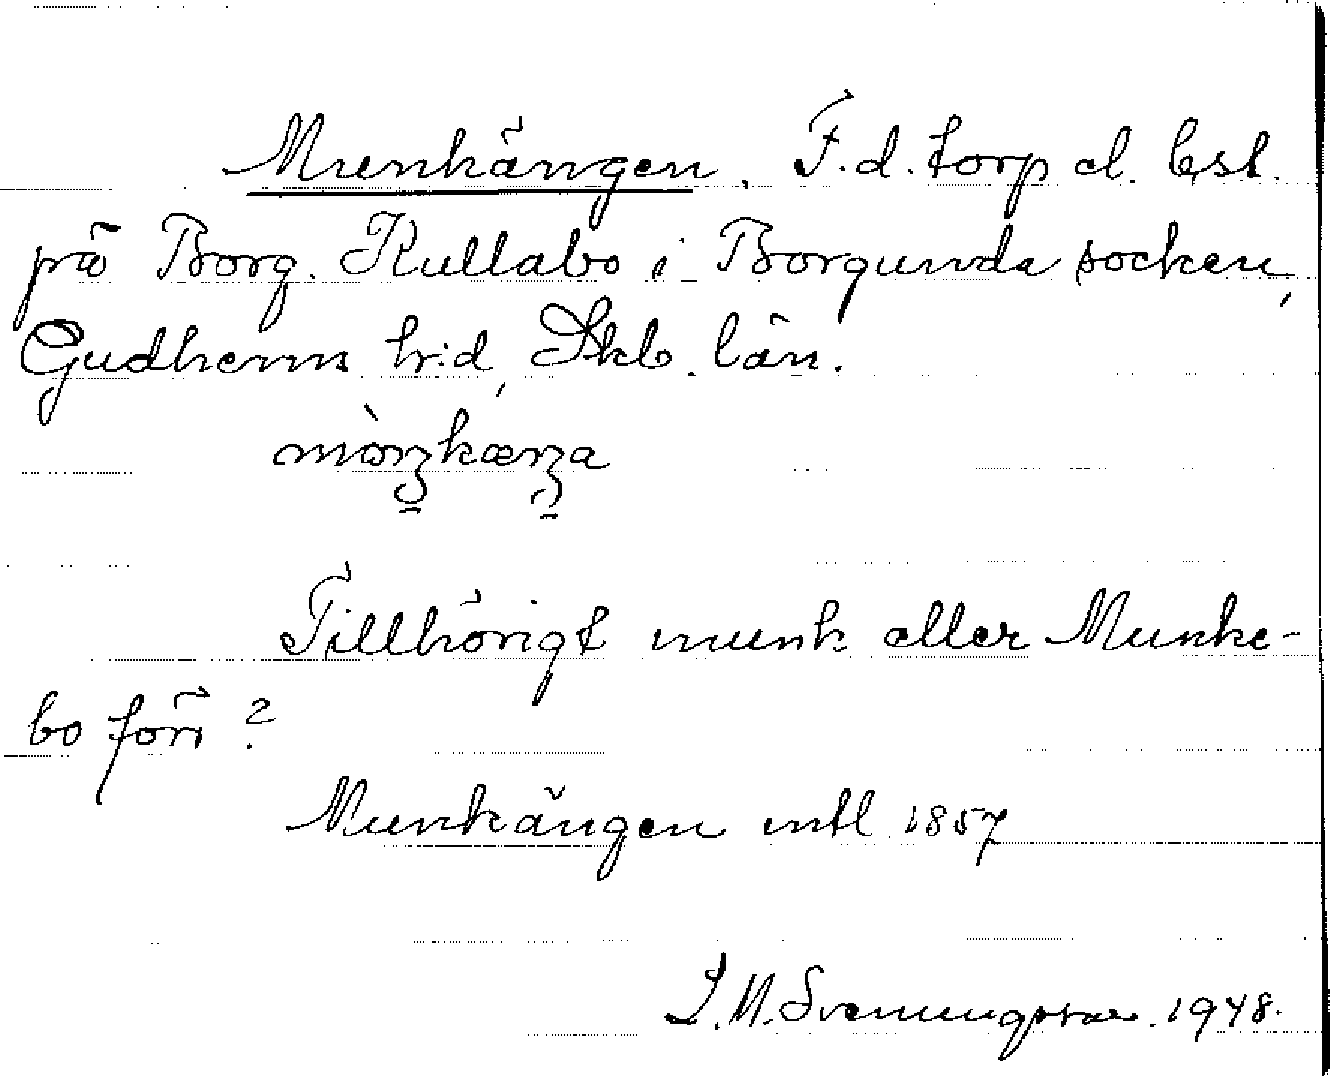 Munkängen. F.d. torp el. lst.
på Borg. Kullabo i Borgunda socken,
Gudhems h:d, Skb. län.
mòŋkæŋa
Tillhörigt munk eller Munke-
bo förr?
Munkängen mtl 1857
L.M. Svenungsson. 1948.